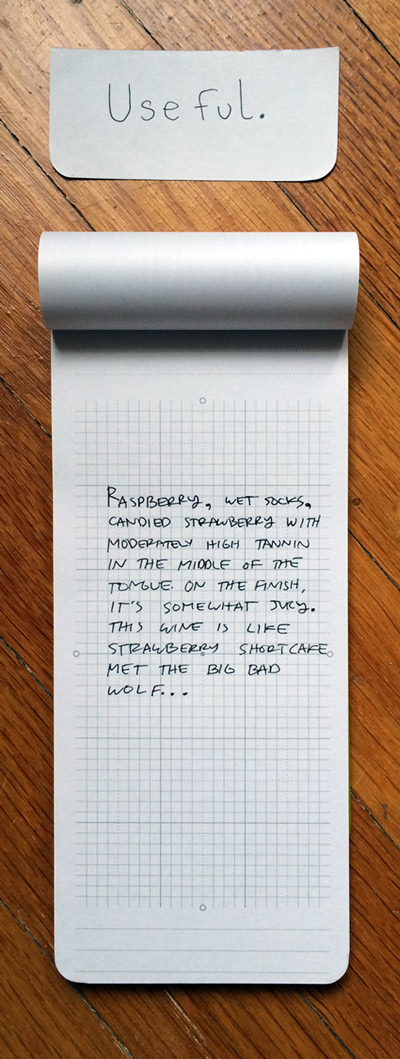 Useful.
RASPBERRY, WET SOCKS,
CANDIED STRAWBERRY WITH
MODERATELY HIGH TANNIN
IN THE MIDDLE OF THE
TONGUE. ON THE FINISH,
IT'S SOMEWHAT JUICY.
THIS WINE IS LIKE
STRAWBERRY SHORTCAKE
MET THE BIG BAD
WOLF...